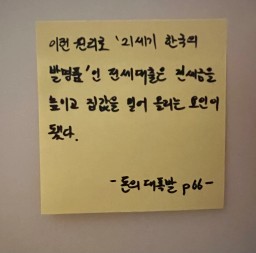 이런 원리로 '21세기 한국의
발명품'인 전세대출은 전세금을
높이고 집값을 밀어 올리는 요인이
됐다.
- 돈의 대폭발 p66 -